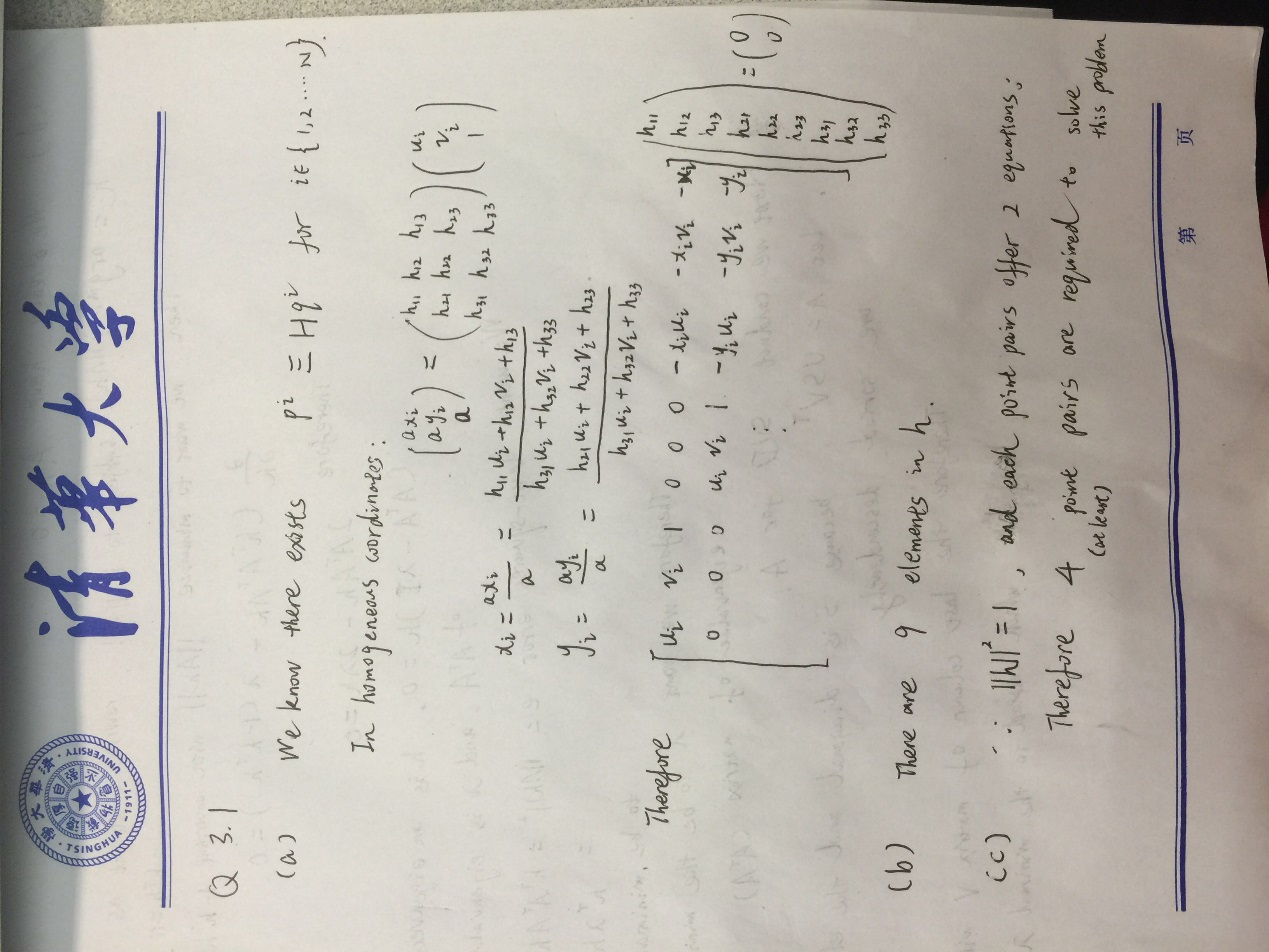 清華大學
清華大學
自强不息
厚德載物
TSINGHUA · UNIVERSITY
-1911-
Q 3.1
(a) We know there exists p^i ≡ Hq^i for i∈{1,2.....N}.
In homogeneous coordinates:
(ax_i ay_i a) = (h11 h12 h13 h21 h22 h23 h31 h32 h33) (u_i v_i 1)
x_i = ax_i/a = (h11 u_i + h12 v_i + h13)/(h31 u_i + h32 v_i + h33)
y_i = ay_i/a = (h21 u_i + h22 v_i + h23)/(h31 u_i + h32 v_i + h33).
Therefore
[u_i v_i 1 0 0 0 -x_i u_i -x_i v_i -x_i
0 0 0 u_i v_i 1 -y_i u_i -y_i v_i -y_i] (h11 h12 h13 h21 h22 h23 h31 h32 h33) = (0 0)
(b) There are 9 elements in h.
(c) ∵ ||h||² = 1, and each point pairs offer 2 equations;
Therefore 4 point pairs are required to solve this problem
(at least)
第 页